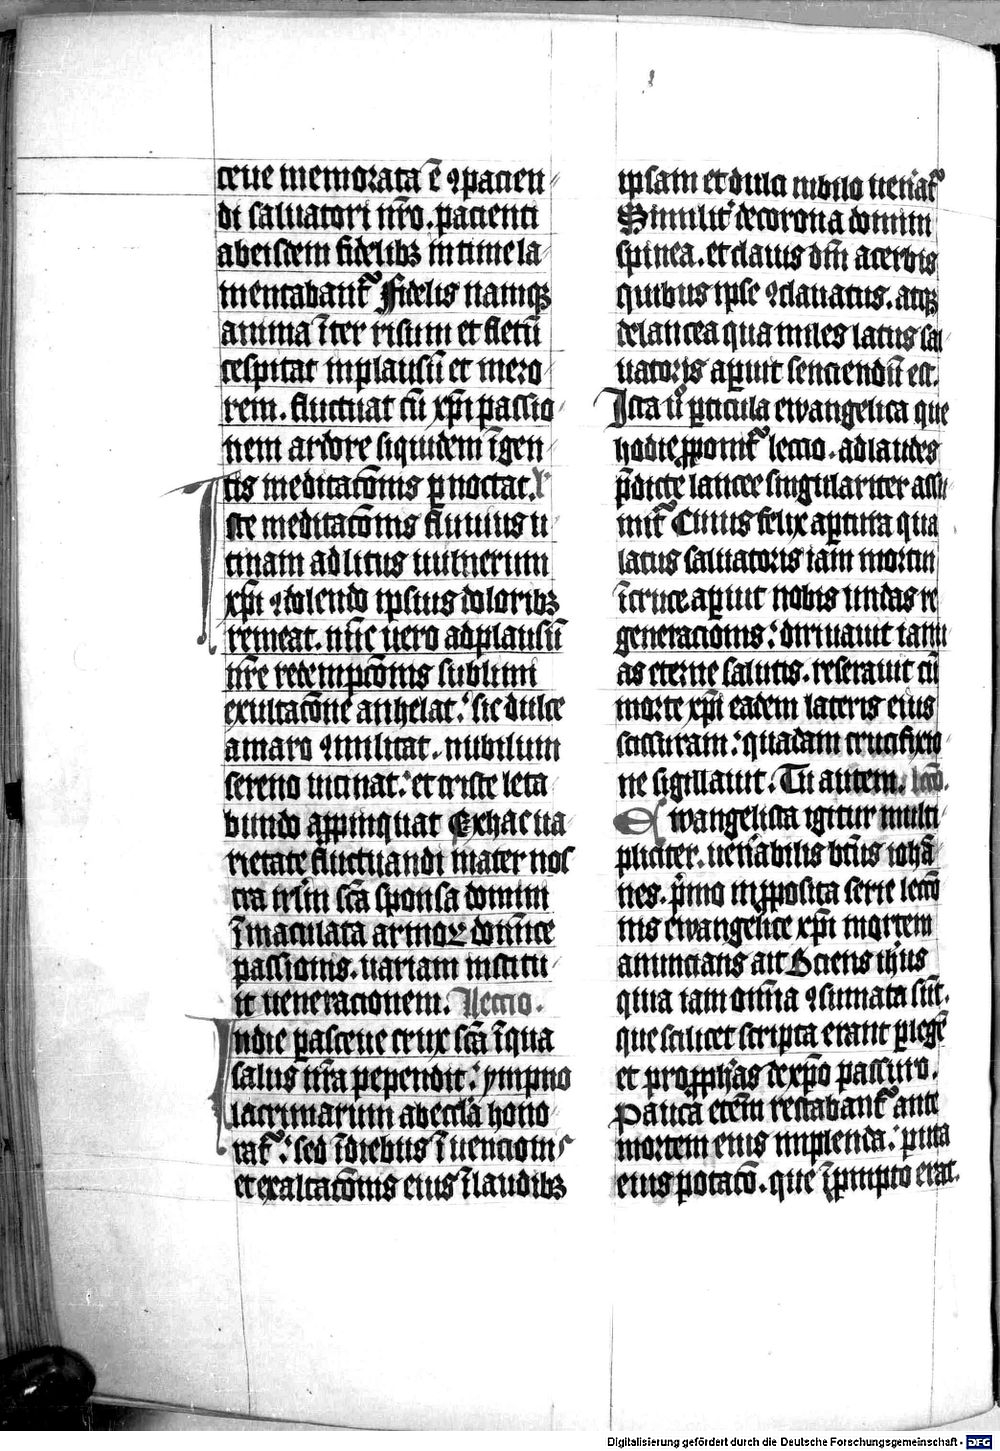 ceue memorata ē ꝯpacien
di saluatori nr̄o. pacienti
abeisdem fidelibꝫ intime la
mentabantᷣ Fidelis namqꝫ
anima īter risum et fletū
cespitat inplausū et mero
rem. fluctuat cū xp̄i passio
nem ardore siquidem īgen
tis meditac̄onis ꝑnoctat.
Iste meditac̄onis fluuius u
tinam ad litus uulnerum
xp̄i ꝯdolendo ipsius doloribꝫ
remeat. nūc uero adplausū
nr̄e redempc̄onis sublimi
exultac̄one anhelat. sic dulce
amaro ꝯmilitat. nubilum
sereno uicinat. et triste leta
bundo aꝓpinquat Exhac ua
rietate fluctuandi mater nos
tra irl̄m sc̄a sponsa domini
īmaculata armoꝝ dominice
passionis. uariam institu
it ueneracionem. Leccio.
Indie pasceue crux sc̄a īqua
salus nr̄a pependit. ympno
lacrimarum abeccl̄a hono
ratᷣ. sed īdiebus īuencionis
et exaltac̄onis eius īlaudibꝫ
ipsam et dulci iubilo uen̄atᷣ
Similitᷣ decorona domini
spinea. et clauis dn̄i acerbis
quibus ipse ꝯclauatus. atqꝫ
delancea qua miles latus sal
uatoris aꝑuit senciendū est.
Ista uͦ ꝑticula ewangelica que
hodie ꝓponitᷣ leccio. ad laudes
p̄dicte lancee singulariter assu
mitᷣ Cuius felix aꝑtura qua
latus saluatoris iam mortui
īcruce aꝑuit nobis undas re
generacionis. diriuauit ianu
as eterne salutis. reserauit cū
morte xp̄i eadem lateris eius
scissuram. quadam crucifixio
ne sigillauit. Tu autem. lc̄o.
Ewangelista igitur multi
pliciter. uen̄abilis bt̄us iohā
nes. p̄mo inꝓposita serie lecc̄o
nis ewangelice xp̄i mortem
anuncians ait Sciens ihūs
quia iam om̄ia ꝯsumata sūt.
que scilicet scripta erant ꝑlegē
et proph̄ias dexp̄o passuro.
Pauca etem restabantᷣ ante
mortem eius implenda. puta
eius potac̄o. que īꝓmpto erat.